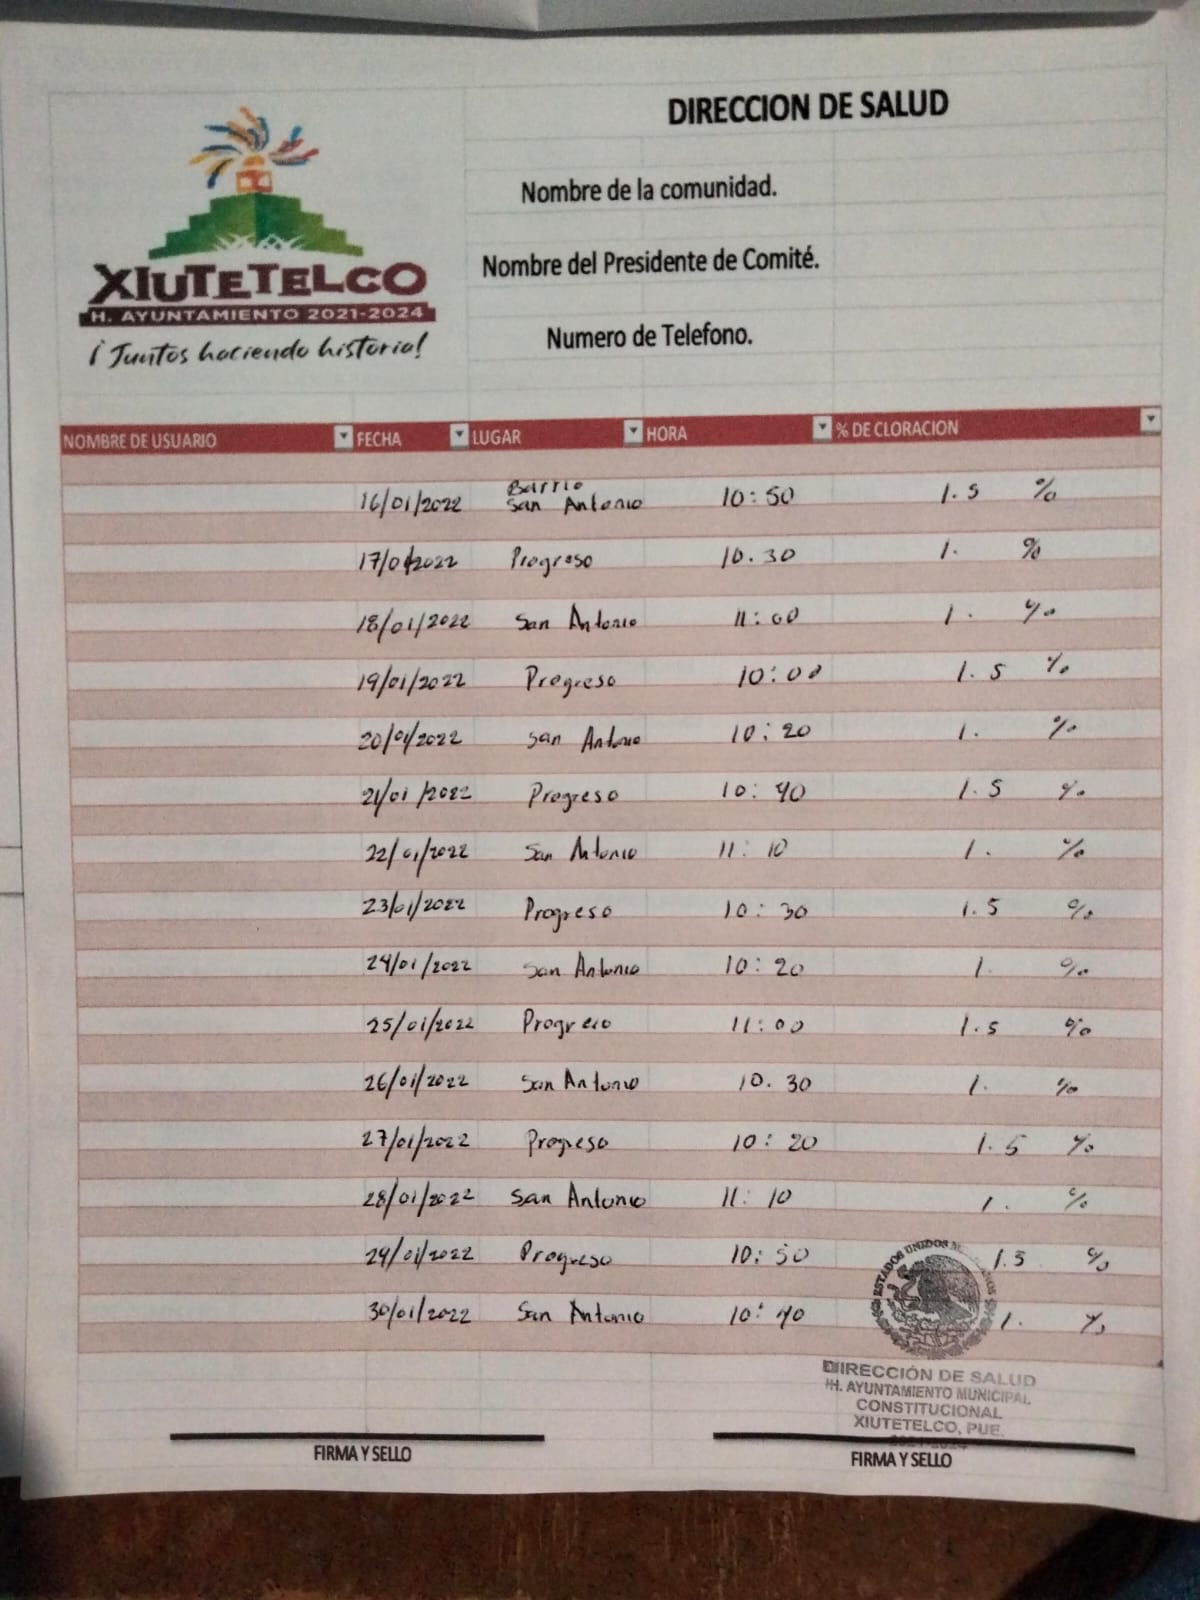 DIRECCION DE SALUD
Nombre de la comunidad.
Nombre del Presidente de Comité.
Numero de Telefono.
XIUTETELCO
H. AYUNTAMIENTO 2021-2024
¡Juntos haciendo historia!
NOMBRE DE USUARIO FECHA LUGAR HORA % DE CLORACION
16/01/2022 Barrio San Antonio 10:50 1.5 %
17/01/2022 Progreso 10.30 1. %
18/01/2022 San Antonio 11:00 1. %
19/01/2022 Progreso 10:00 1.5 %
20/01/2022 San Antonio 10:20 1. %
21/01/2022 Progreso 10:40 1.5 %
22/01/2022 San Antonio 11:10 1. %
23/01/2022 Progreso 10:30 1.5 %
24/01/2022 San Antonio 10:20 1. %
25/01/2022 Progreso 11:00 1.5 %
26/01/2022 San Antonio 10.30 1. %
27/01/2022 Progreso 10:20 1.5 %
28/01/2022 San Antonio 11:10 1. %
29/01/2022 Progreso 10:50 1.5 %
30/01/2022 San Antonio 10:40 1. %
ESTADOS UNIDOS
DIRECCIÓN DE SALUD
H. AYUNTAMIENTO MUNICIPAL
CONSTITUCIONAL
XIUTETELCO, PUE.
2021-2024
FIRMA Y SELLO FIRMA Y SELLO